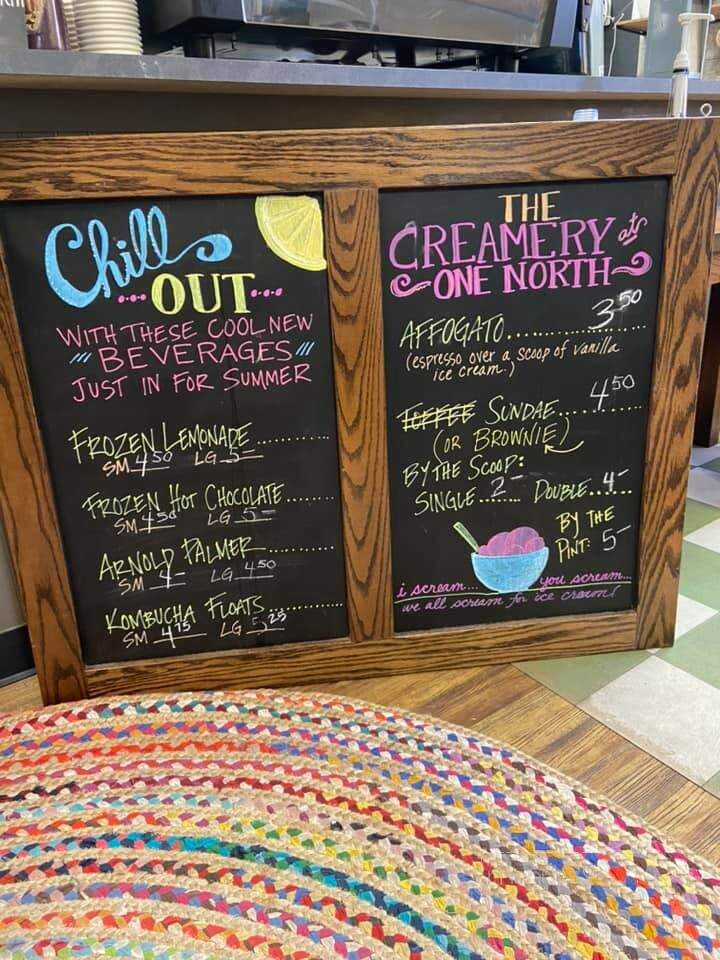 Chill
OUT
WITH THESE COOL NEW
BEVERAGES
JUST IN FOR SUMMER
FROZEN LEMONADE ..........
SM 4.50 LG 5-
FROZEN HOT CHOCOLATE.......
SM 4.50 LG 5-
ARNOLD PALMER ..........
SM 4- LG 4.50
KOMBUCHA FLOATS ..........
SM 4.75 LG 5.25
THE
CREAMERY at
ONE NORTH
AFFOGATO.......... 3.50
(espresso over a scoop of vanilla
ice cream.)
TOFFEE SUNDAE.......... 4.50
(OR BROWNIE)
BY THE SCOOP:
SINGLE....... 2- DOUBLE..4-..
BY THE
PINT: 5-
i scream... you scream...
we all scream for ice cream!